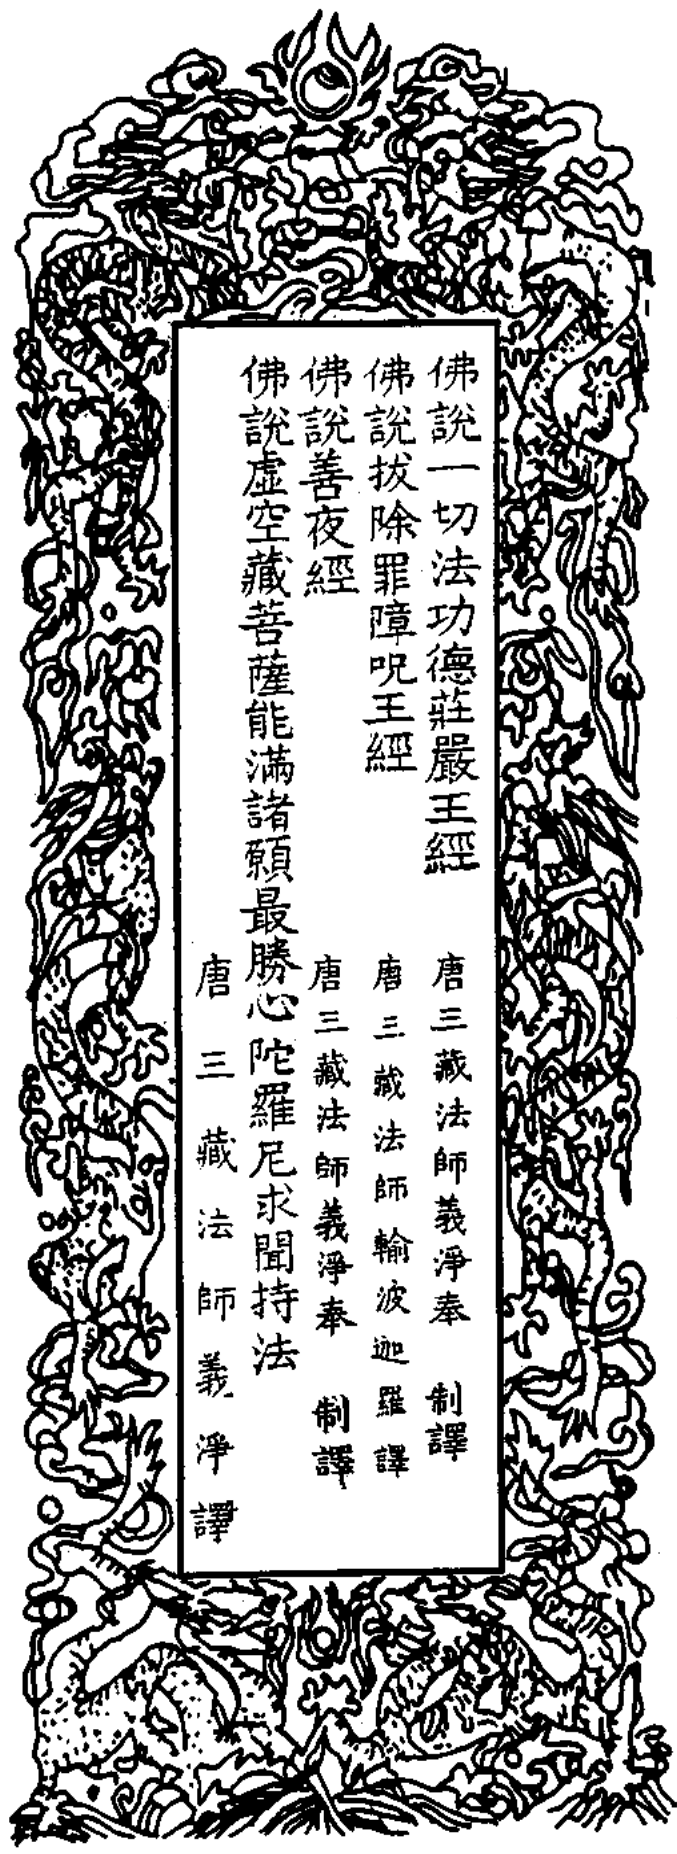 佛說一切法功德莊嚴王經 唐三藏法師義淨奉 制譯
佛說拔除罪障呪王經 唐三藏法師輸波迦羅譯
佛說善夜經 唐三藏法師義淨奉 制譯
佛說虛空藏菩薩能滿諸願最勝心陀羅尼求聞持法
唐三藏法師義淨譯